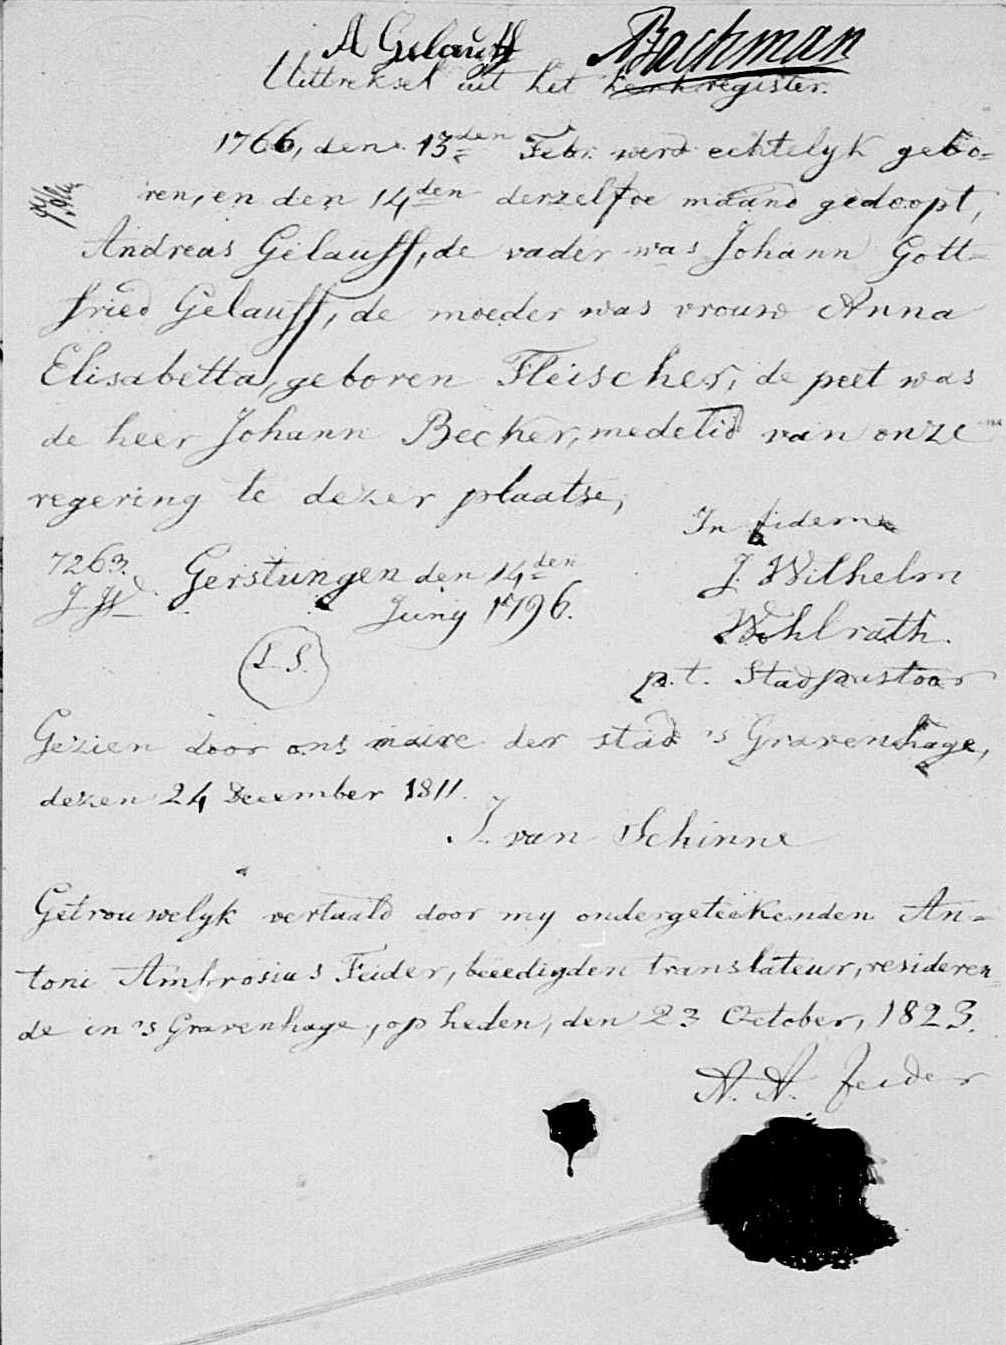 A Gelauff ABachman
Uittreksel uit het kerkregister.
1766, den 13den Febr. werd echtelyk gebo=
ren, en den 14den derzelfve maand gedoopt,
Andreas Gelauff, de vader was Johann Gott=
fried Gelauff, de moeder was vrouw Anna
Elisabetta, geboren Fleischer, de peet was
de heer Johann Becher, medelid van onze
regering te dezer plaatse,
In fidem
7263. Gerstungen den 14den J. Wilhelm
Juny 1796. Wohlrath.
L. S. p. t. Stadpastoor
Gezien door ons maire der stad 's Gravenhage,
dezen 24 December 1811.
J. van Schinne
Getrouwelyk vertaald door my ondergeteekenden An=
toni Ambrosius Feider, beeedigden translateur, resideren=
de in 's Gravenhage, op heden, den 23 October, 1823.
A. A. Feider